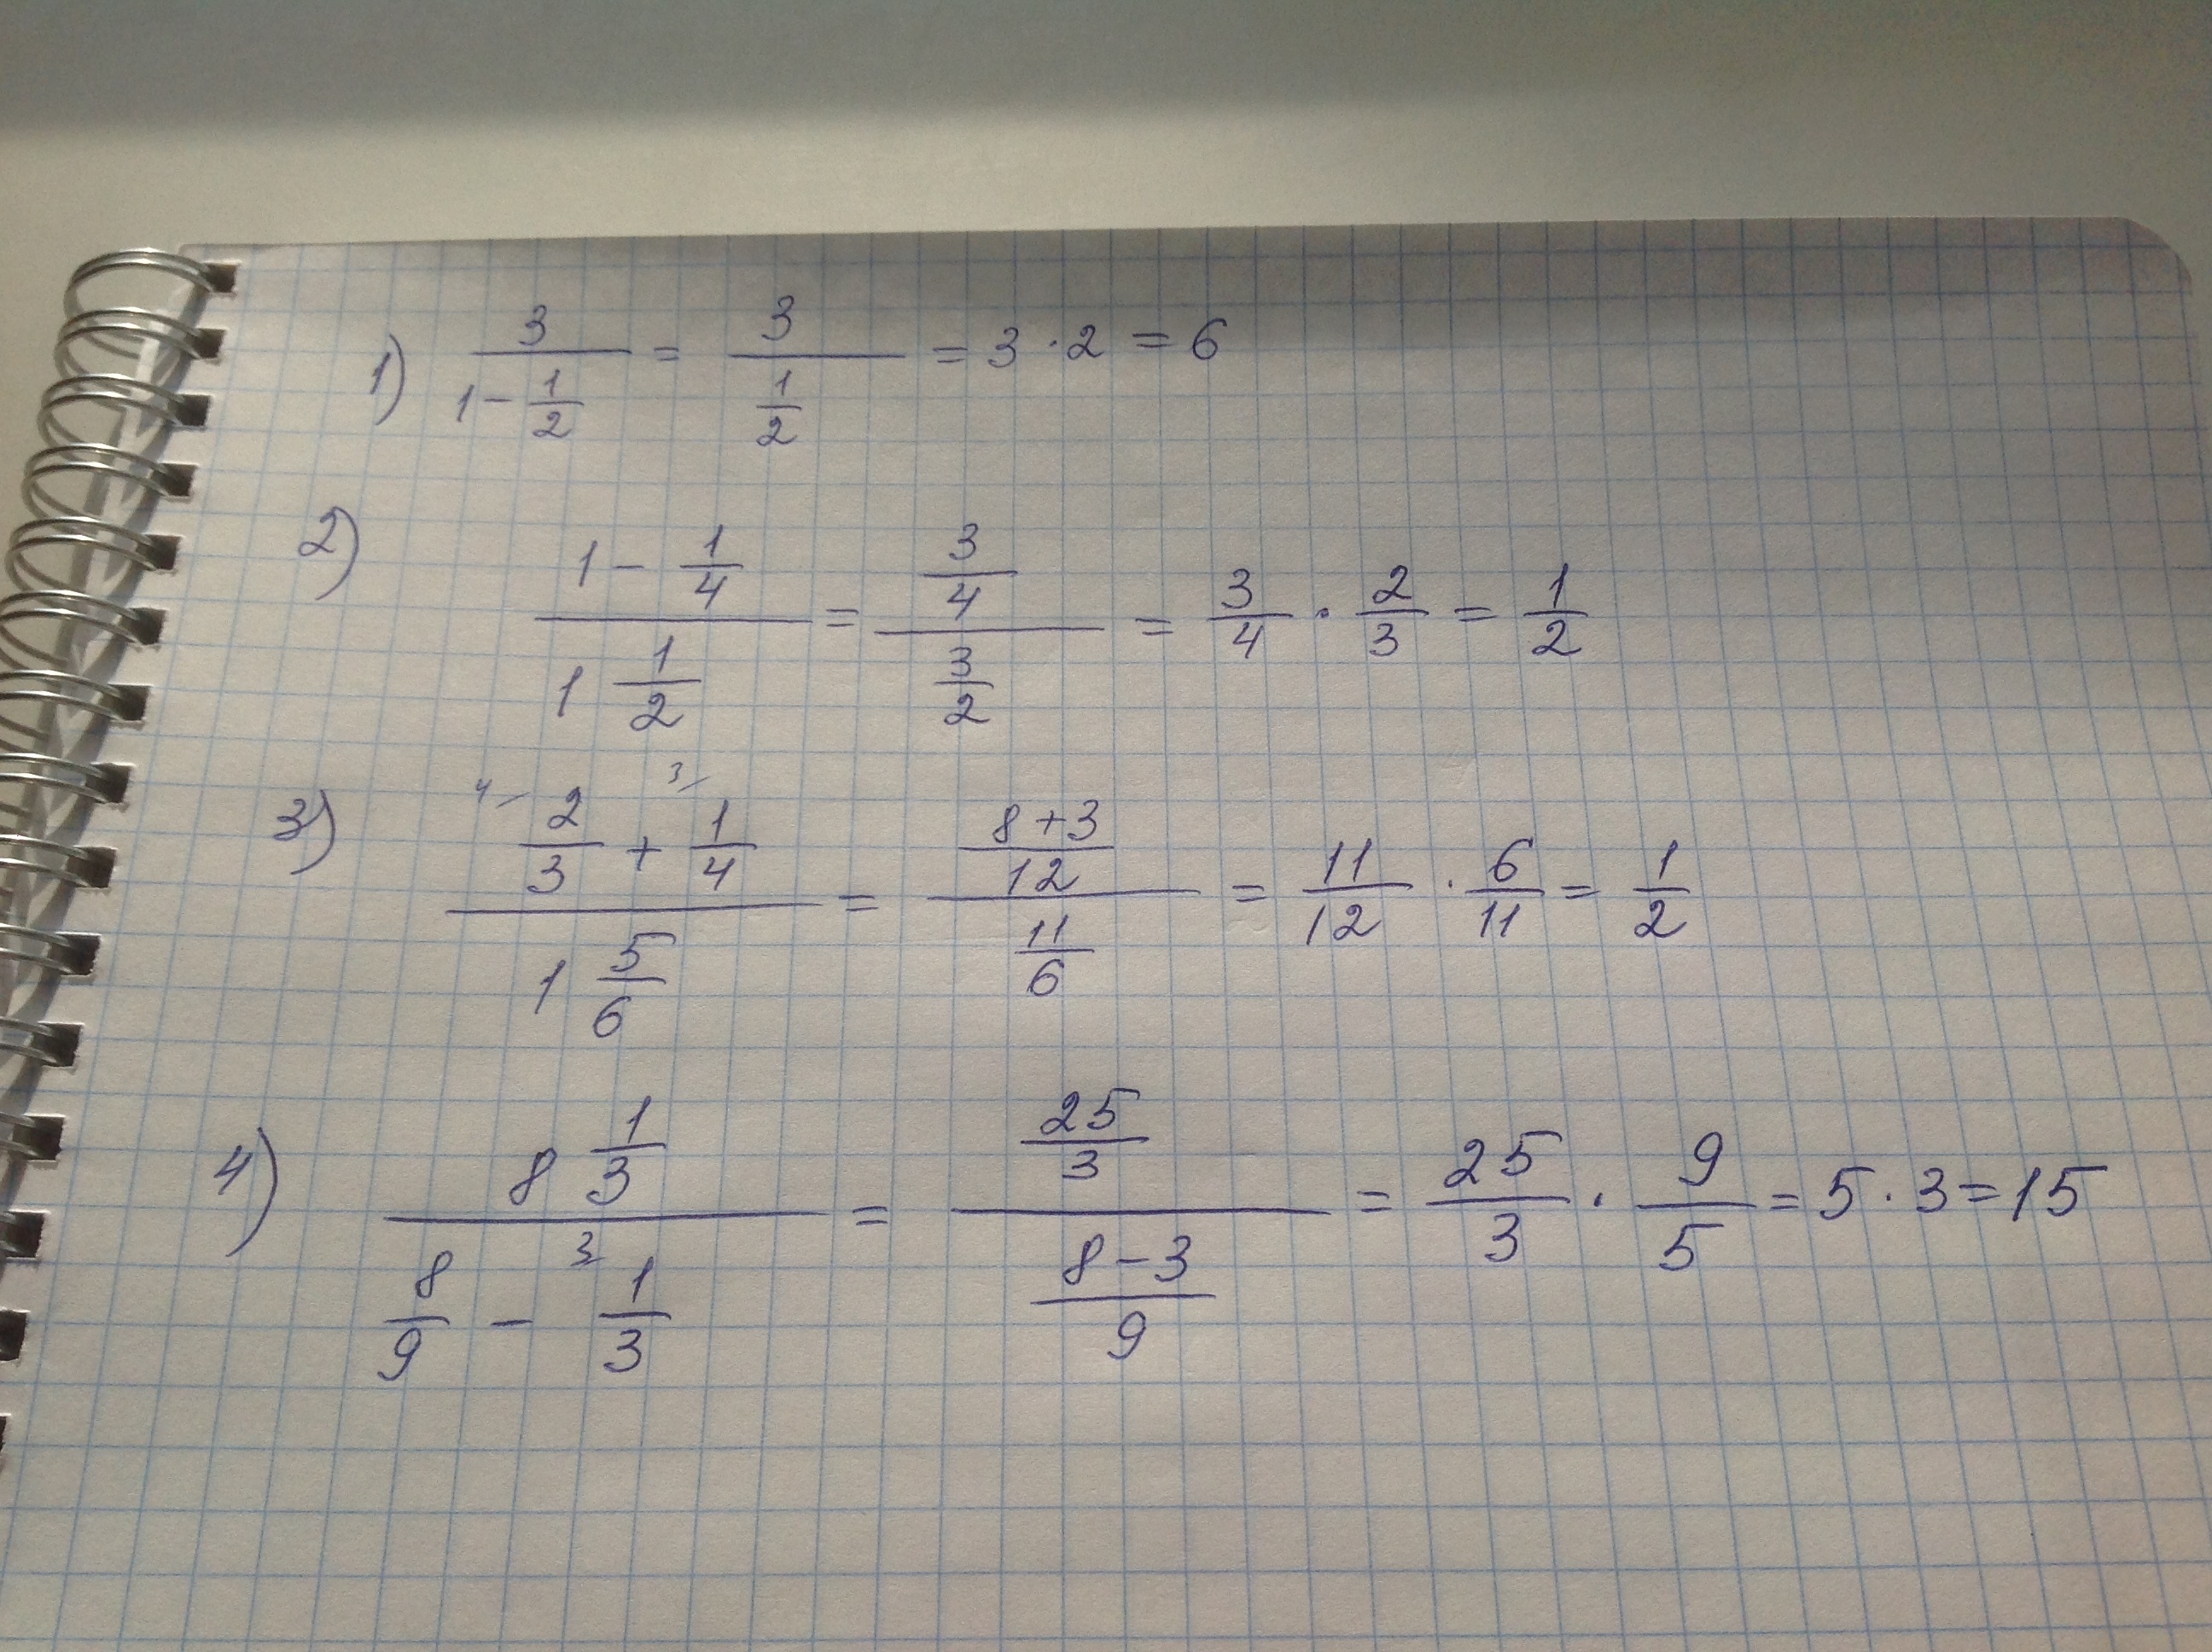 1) 3/(1 - 1/2) = 3/(1/2) = 3 · 2 = 6
2) (1 - 1/4)/(1 1/2) = (3/4)/(3/2) = 3/4 · 2/3 = 1/2
3) (4/ 2/3 + 3/ 1/4)/(1 5/6) = ((8+3)/12)/(11/6) = 11/12 · 6/11 = 1/2
4) (8 1/3)/(8/9 - 3/ 1/3) = (25/3)/((8-3)/9) = 25/3 · 9/5 = 5 · 3 = 15